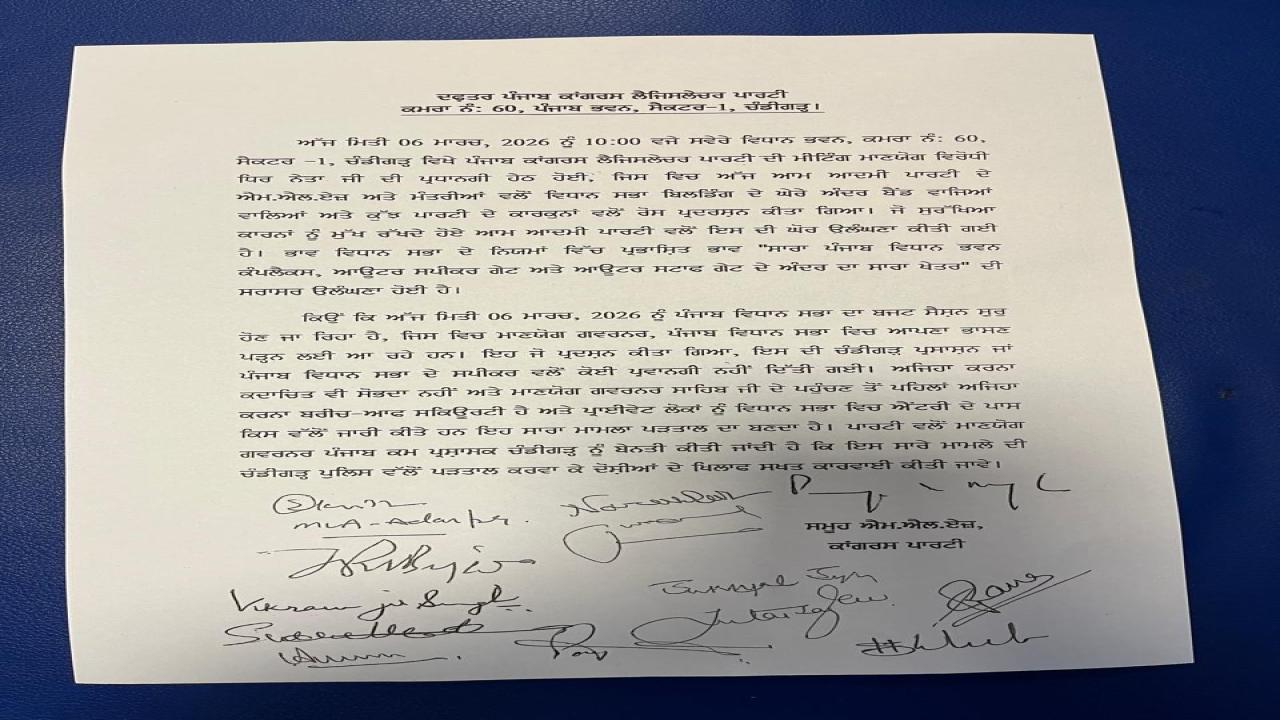 ਦਫ਼ਤਰ ਪੰਜਾਬ ਕਾਂਗਰਸ ਲੈਜਿਸਲੇਚਰ ਪਾਰਟੀ
ਕਮਰਾ ਨੰ: 60, ਪੰਜਾਬ ਭਵਨ, ਸੈਕਟਰ-1, ਚੰਡੀਗੜ੍ਹ।
ਅੱਜ ਮਿਤੀ 06 ਮਾਰਚ, 2026 ਨੂੰ 10:00 ਵਜੇ ਸਵੇਰੇ ਵਿਧਾਨ ਭਵਨ, ਕਮਰਾ ਨੰ: 60,
ਸੈਕਟਰ -1, ਚੰਡੀਗੜ੍ਹ ਵਿਖੇ ਪੰਜਾਬ ਕਾਂਗਰਸ ਲੈਜਿਸਲੇਚਰ ਪਾਰਟੀ ਦੀ ਮੀਟਿੰਗ ਮਾਣਯੋਗ ਵਿਰੋਧੀ
ਧਿਰ ਨੇਤਾ ਜੀ ਦੀ ਪ੍ਰਧਾਨਗੀ ਹੇਠ ਹੋਈ, ਜਿਸ ਵਿਚ ਅੱਜ ਆਮ ਆਦਮੀ ਪਾਰਟੀ ਦੇ
ਐਮ.ਐਲ.ਏਜ਼ ਅਤੇ ਮੰਤਰੀਆਂ ਵਲੋਂ ਵਿਧਾਨ ਸਭਾ ਬਿਲਡਿੰਗ ਦੇ ਘੇਰੇ ਅੰਦਰ ਬੈਂਡ ਵਾਜਿਆਂ
ਵਾਲਿਆਂ ਅਤੇ ਕੁੱਝ ਪਾਰਟੀ ਦੇ ਕਾਰਕੁਨਾਂ ਵਲੋਂ ਰੋਸ ਪ੍ਰਦਰਸ਼ਨ ਕੀਤਾ ਗਿਆ। ਜੋ ਸੁਰੱਖਿਆ
ਕਾਰਨਾਂ ਨੂੰ ਮੁੱਖ ਰੱਖਦੇ ਹੋਏ ਆਮ ਆਦਮੀ ਪਾਰਟੀ ਵਲੋਂ ਇਸ ਦੀ ਘੋਰ ਉਲੰਘਣਾ ਕੀਤੀ ਗਈ
ਹੈ। ਭਾਵ ਵਿਧਾਨ ਸਭਾ ਦੇ ਨਿਯਮਾਂ ਵਿੱਚ ਪ੍ਰਭਾਸ਼ਿਤ ਭਾਵ "ਸਾਰਾ ਪੰਜਾਬ ਵਿਧਾਨ ਭਵਨ
ਕੰਪਲੈਕਸ, ਆਊਟਰ ਸਪੀਕਰ ਗੇਟ ਅਤੇ ਆਊਟਰ ਸਟਾਫ ਗੇਟ ਦੇ ਅੰਦਰ ਦਾ ਸਾਰਾ ਖੇਤਰ" ਦੀ
ਸਰਾਸਰ ਉਲੰਘਣਾ ਹੋਈ ਹੈ।
ਕਿਉਂ ਕਿ ਅੱਜ ਮਿਤੀ 06 ਮਾਰਚ, 2026 ਨੂੰ ਪੰਜਾਬ ਵਿਧਾਨ ਸਭਾ ਦਾ ਬਜਟ ਸੈਸ਼ਨ ਸ਼ੁਰੂ
ਹੋਣ ਜਾ ਰਿਹਾ ਹੈ, ਜਿਸ ਵਿਚ ਮਾਣਯੋਗ ਗਵਰਨਰ, ਪੰਜਾਬ ਵਿਧਾਨ ਸਭਾ ਵਿਚ ਆਪਣਾ ਭਾਸ਼ਣ
ਪੜ੍ਹਨ ਲਈ ਆ ਰਹੇ ਹਨ। ਇਹ ਜੋ ਪ੍ਰਦਸ਼ਨ ਕੀਤਾ ਗਿਆ, ਇਸ ਦੀ ਚੰਡੀਗੜ੍ਹ ਪ੍ਰਸਾਸ਼ਨ ਜਾਂ
ਪੰਜਾਬ ਵਿਧਾਨ ਸਭਾ ਦੇ ਸਪੀਕਰ ਵਲੋਂ ਕੋਈ ਪ੍ਰਵਾਨਗੀ ਨਹੀਂ ਦਿੱਤੀ ਗਈ। ਅਜਿਹਾ ਕਰਨਾ
ਕਦਾਚਿਤ ਵੀ ਸ਼ੋਭਦਾ ਨਹੀਂ ਅਤੇ ਮਾਣਯੋਗ ਗਵਰਨਰ ਸਾਹਿਬ ਜੀ ਦੇ ਪਹੁੰਚਣ ਤੋਂ ਪਹਿਲਾਂ ਅਜਿਹਾ
ਕਰਨਾ ਬਰੀਚ-ਆਫ ਸਕਿਉਰਟੀ ਹੈ ਅਤੇ ਪ੍ਰਾਈਵੇਟ ਲੋਕਾਂ ਨੂੰ ਵਿਧਾਨ ਸਭਾ ਵਿਚ ਐਂਟਰੀ ਦੇ ਪਾਸ
ਕਿਸ ਵੱਲੋਂ ਜਾਰੀ ਕੀਤੇ ਹਨ ਇਹ ਸਾਰਾ ਮਾਮਲਾ ਪੜਤਾਲ ਦਾ ਬਣਦਾ ਹੈ। ਪਾਰਟੀ ਵਲੋਂ ਮਾਣਯੋਗ
ਗਵਰਨਰ ਪੰਜਾਬ ਕਮ ਪ੍ਰਸ਼ਾਸਕ ਚੰਡੀਗੜ੍ਹ ਨੂੰ ਬੇਨਤੀ ਕੀਤੀ ਜਾਂਦੀ ਹੈ ਕਿ ਇਸ ਸਾਰੇ ਮਾਮਲੇ ਦੀ
ਚੰਡੀਗੜ੍ਹ ਪੁਲਿਸ ਵੱਲੋਂ ਪੜਤਾਲ ਕਰਵਾ ਕੇ ਦੋਸ਼ੀਆਂ ਦੇ ਖਿਲਾਫ ਸਖਤ ਕਾਰਵਾਈ ਕੀਤੀ ਜਾਵੇ।
MLA-Adampur.
ਸਮੂਹ ਐਮ.ਐਲ.ਏਜ਼,
ਕਾਂਗਰਸ ਪਾਰਟੀ
Vikramjit Singh